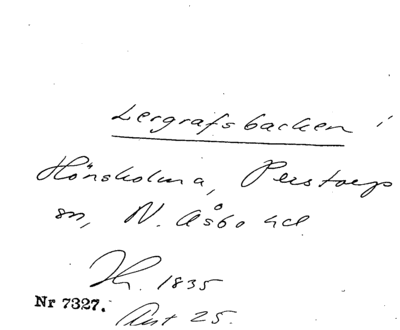 Lergrafsbacken i
Hönsholma, Perstorps
sn, N. Åsbo hd
Th. 1835
Nr 7327.
Ant 25.